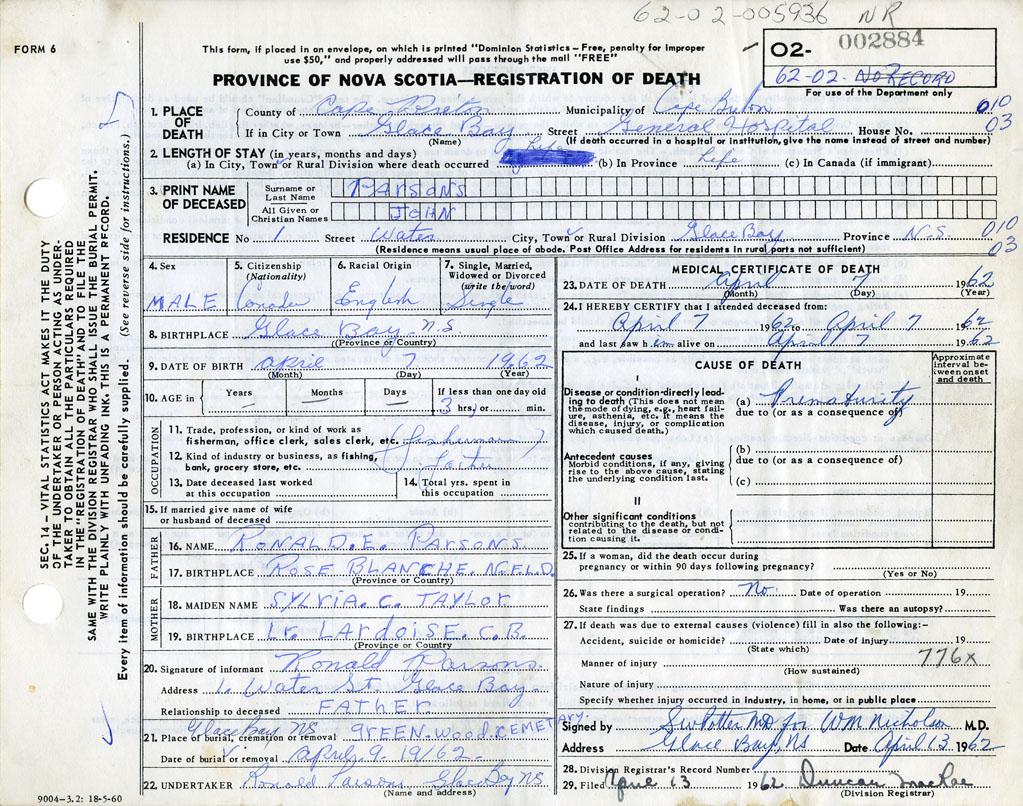 62-02-005936 NR
FORM 6
This form, if placed in an envelope, on which is printed "Dominion Statistics – Free, penalty for improper
use $50," and properly addressed will pass through the mail "FREE"
02- 002884
62-02- NO RECORD
For use of the Department only
PROVINCE OF NOVA SCOTIA—REGISTRATION OF DEATH
1. PLACE OF DEATH
County of Cape Breton Municipality of Cape Breton 010
If in City or Town Glace Bay Street General Hospital House No. 03
(Name) (If death occurred in a hospital or institution, give the name instead of street and number)
2. LENGTH OF STAY (in years, months and days)
(a) In City, Town or Rural Division where death occurred Life (b) In Province Life (c) In Canada (if immigrant)
3. PRINT NAME OF DECEASED
Surname or Last Name PARSONS
All Given or Christian Names JOHN
RESIDENCE No 1 Street Water City, Town or Rural Division Glace Bay Province N.S. 010 03
(Residence means usual place of abode. Post Office Address for residents in rural parts not sufficient)
4. Sex MALE
5. Citizenship (Nationality)
6. Racial Origin English
7. Single, Married, Widowed or Divorced (write the word) Single
8. BIRTHPLACE Glace Bay N.S
(Province or Country)
9. DATE OF BIRTH April 7 1962
(Month) (Day) (Year)
10. AGE in Years — Months — Days — If less than one day old 3 hrs, or min.
OCCUPATION
11. Trade, profession, or kind of work as
fisherman, office clerk, sales clerk, etc. (Fisherman)
12. Kind of industry or business, as fishing,
bank, grocery store, etc.
13. Date deceased last worked
at this occupation
14. Total yrs. spent in
this occupation
15. If married give name of wife
or husband of deceased
FATHER
16. NAME RONALD. E. PARSONS
17. BIRTHPLACE ROSE BLANCHE. NFLD.
(Province or Country)
MOTHER
18. MAIDEN NAME SYLVIA. C. TAYLOR
19. BIRTHPLACE Lr. LARDOISE. C.B.
(Province or Country
20. Signature of informant Ronald Parsons.
Address 1. Water St Glace Bay.
Relationship to deceased FATHER
Glace Bay NS
21. Place of burial, cremation or removal GREEN.wood.CEMETARY.
Date of burial or removal April. 9. 19/62
22. UNDERTAKER Ronald Parsons Glace Bay NS
(Name and address)
9004–3.2: 18-5-60
MEDICAL CERTIFICATE OF DEATH
23. DATE OF DEATH April 7 1962
(Month) (Day) (Year)
24. I HEREBY CERTIFY that I attended deceased from:
April 7 1962 to April 7 1962
and last saw him alive on April 7 1962
CAUSE OF DEATH
Approximate interval be-tween onset and death
I
Disease or condition directly lead-
ing to death (This does not mean
the mode of dying, e.g., heart fail-
ure, asthenia, etc. It means the
disease, injury, or complication
which caused death.)
(a) Prematurity
due to (or as a consequence of)
Antecedent causes
Morbid conditions, if any, giving
rise to the above cause, stating
the underlying condition last.
(b)
due to (or as a consequence of)
(c)
II
Other significant conditions
contributing to the death, but not
related to the disease or condi-
tion causing it.
25. If a woman, did the death occur during
pregnancy or within 90 days following pregnancy?
(Yes or No)
26. Was there a surgical operation? No. Date of operation 19
State findings Was there an autopsy?
27. If death was due to external causes (violence) fill in also the following:–
Accident, suicide or homicide? Date of injury 19
(State which)
Manner of injury 776x
(How sustained)
Nature of injury
Specify whether injury occurred in industry, in home, or in public place
Signed by SW Potter MD for WM Nicholson M.D.
Address Glace Bay, NS Date April 13 1962
28. Division Registrar's Record Number
29. Filed April 13 1962 Duncan MacRae
(Division Registrar)
SEC. 14 – VITAL STATISTICS ACT MAKES IT THE DUTY
OF THE UNDERTAKER OR PERSON ACTING AS UNDER-
TAKER TO OBTAIN ALL THE PARTICULARS REQUIRED
IN THE "REGISTRATION OF DEATH" AND TO FILE THE
SAME WITH THE DIVISION REGISTRAR WHO SHALL ISSUE THE BURIAL PERMIT.
WRITE PLAINLY WITH UNFADING INK. THIS IS A PERMANENT RECORD.
Every item of information should be carefully supplied. (See reverse side for instructions.)